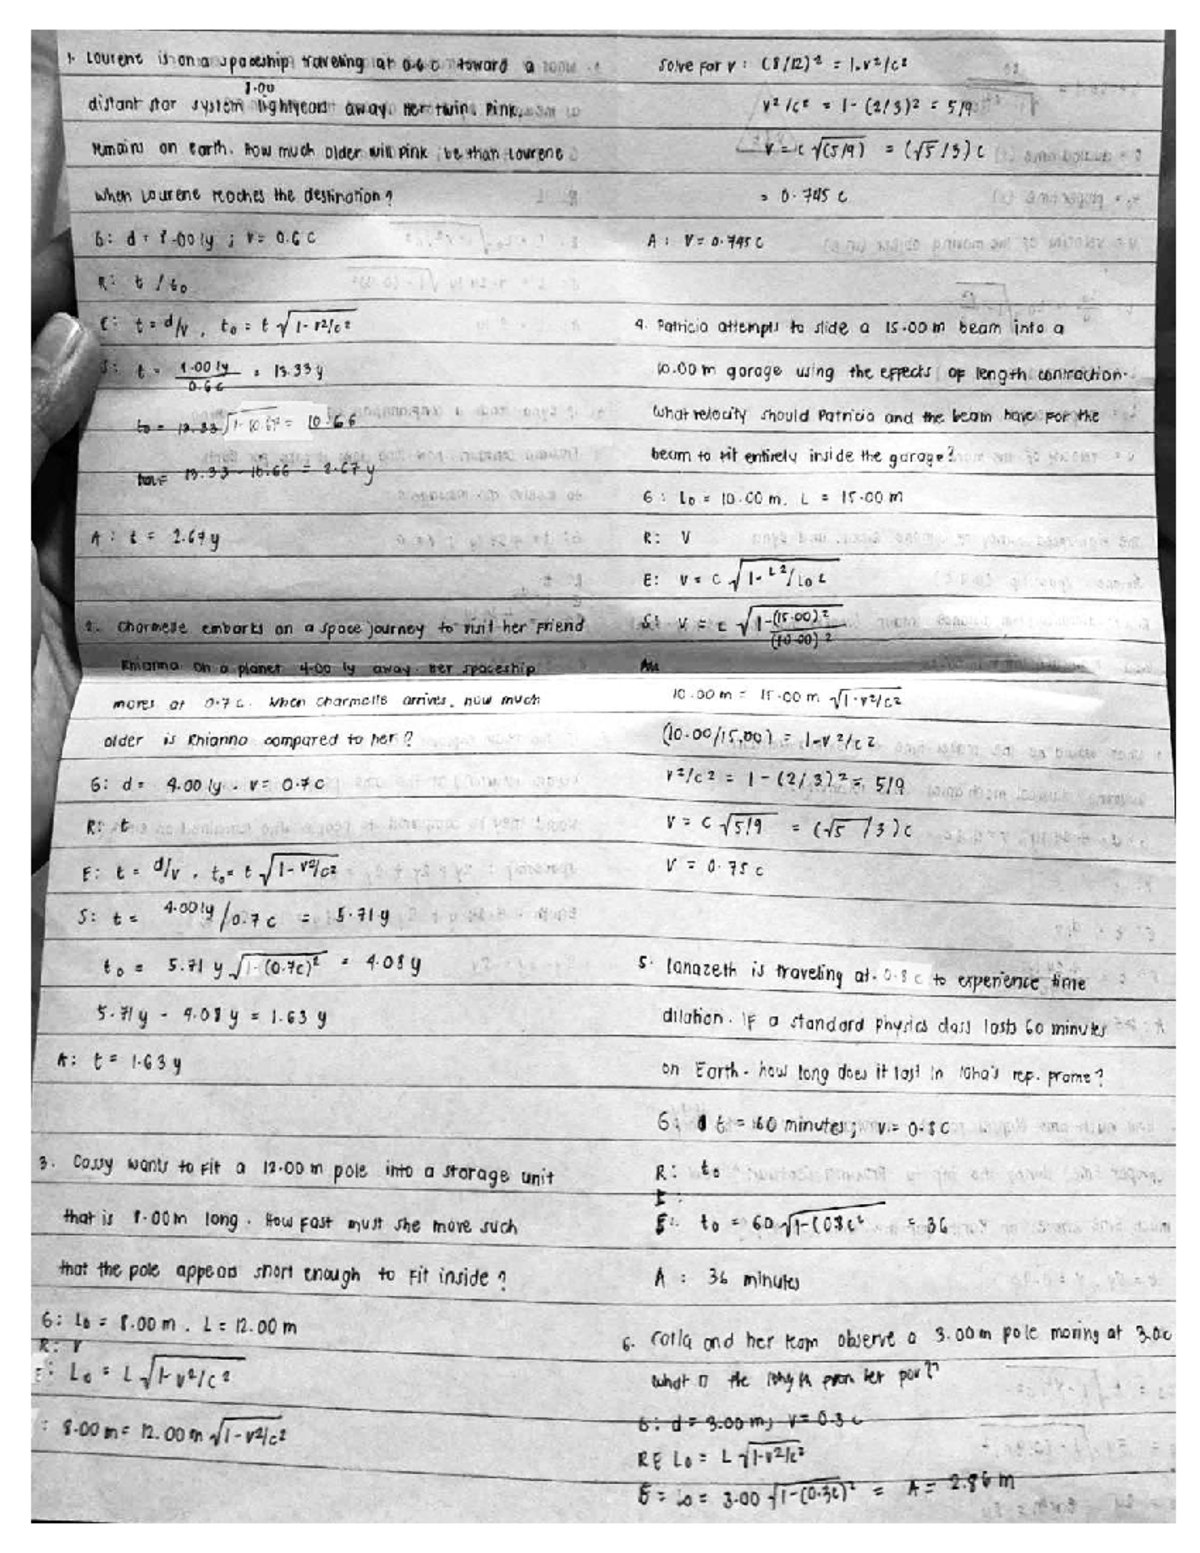 1. Lourene is on a spaceship traveling at 0.6 c toward a
8.00
distant star system lightyears away. Her twin, Pink,
remains on Earth. How much older will pink be than Lourene
when Lourene reaches the destination?
G: d = 8.00 ly ; v = 0.6 c
R: t / t₀
E: t = d/v , t₀ = t √1 - v²/c²
S: t = 8.00 ly / 0.6 c = 13.33 y
t₀ = 13.33 √1 - (0.6)² = 10.66
13.33 - 10.66 = 2.67 y
A : t = 2.67 y
2. Charmelle embarks on a space journey to visit her friend
Rhianna on a planet 4.00 ly away. Her spaceship
moves at 0.7 c. When Charmelle arrives, how much
older is Rhianna compared to her?
G: d = 4.00 ly . v = 0.7 c
R: t
E: t = d/v , t₀ = t √1 - v²/c²
S: t = 4.00 ly / 0.7 c = 5.71 y
t₀ = 5.71 y √1 - (0.7c)² = 4.08 y
5.71 y - 4.08 y = 1.63 y
A: t = 1.63 y
3. Cassy wants to fit a 12.00 m pole into a storage unit
that is 8.00 m long. How fast must she move such
that the pole appears short enough to fit inside?
G: L₀ = 8.00 m . L = 12.00 m
R: V
E: L₀ = L √1 - v²/c²
: 8.00 m = 12.00 m √1 - v²/c²
Solve for v : (8/12)² = 1 - v²/c²
v²/c² = 1 - (2/3)² = 5/9
v = c √(5/9) = (√5 / 3) c
= 0.745 c
A : V = 0.745 c
4. Patricia attempts to slide a 15.00 m beam into a
10.00 m garage using the effects of length contraction.
What velocity should Patricia and the beam have for the
beam to fit entirely inside the garage?
G : L₀ = 10.00 m. L = 15.00 m
R: V
E: V = c √1 - L²/L₀²
S: V = c √1 - (15.00)² / (10.00)²
10.00 m = 15.00 m √1 - v²/c²
(10.00/15.00) = 1 - v²/c²
v²/c² = 1 - (2/3)² = 5/9
V = c √5/9 = (√5 / 3) c
V = 0.75 c
5. Ianazeth is traveling at 0.8 c to experience time
dilation. If a standard physics class lasts 60 minutes
on Earth - how long does it last in Iana's rep. frame?
G: t = 60 minutes; v = 0.8 c
R: t₀
E:
S: t₀ = 60 √1 - (0.8c² = 36
A : 36 minutes
6. Carla and her team observe a 3.00 m pole moving at 3.0c
What is the length from her pov?
G: d = 3.00 m; v = 0.3 c
RE L₀ = L √1 - v²/c²
S = L₀ = 3.00 √1 - (0.3c)² = A = 2.86 m